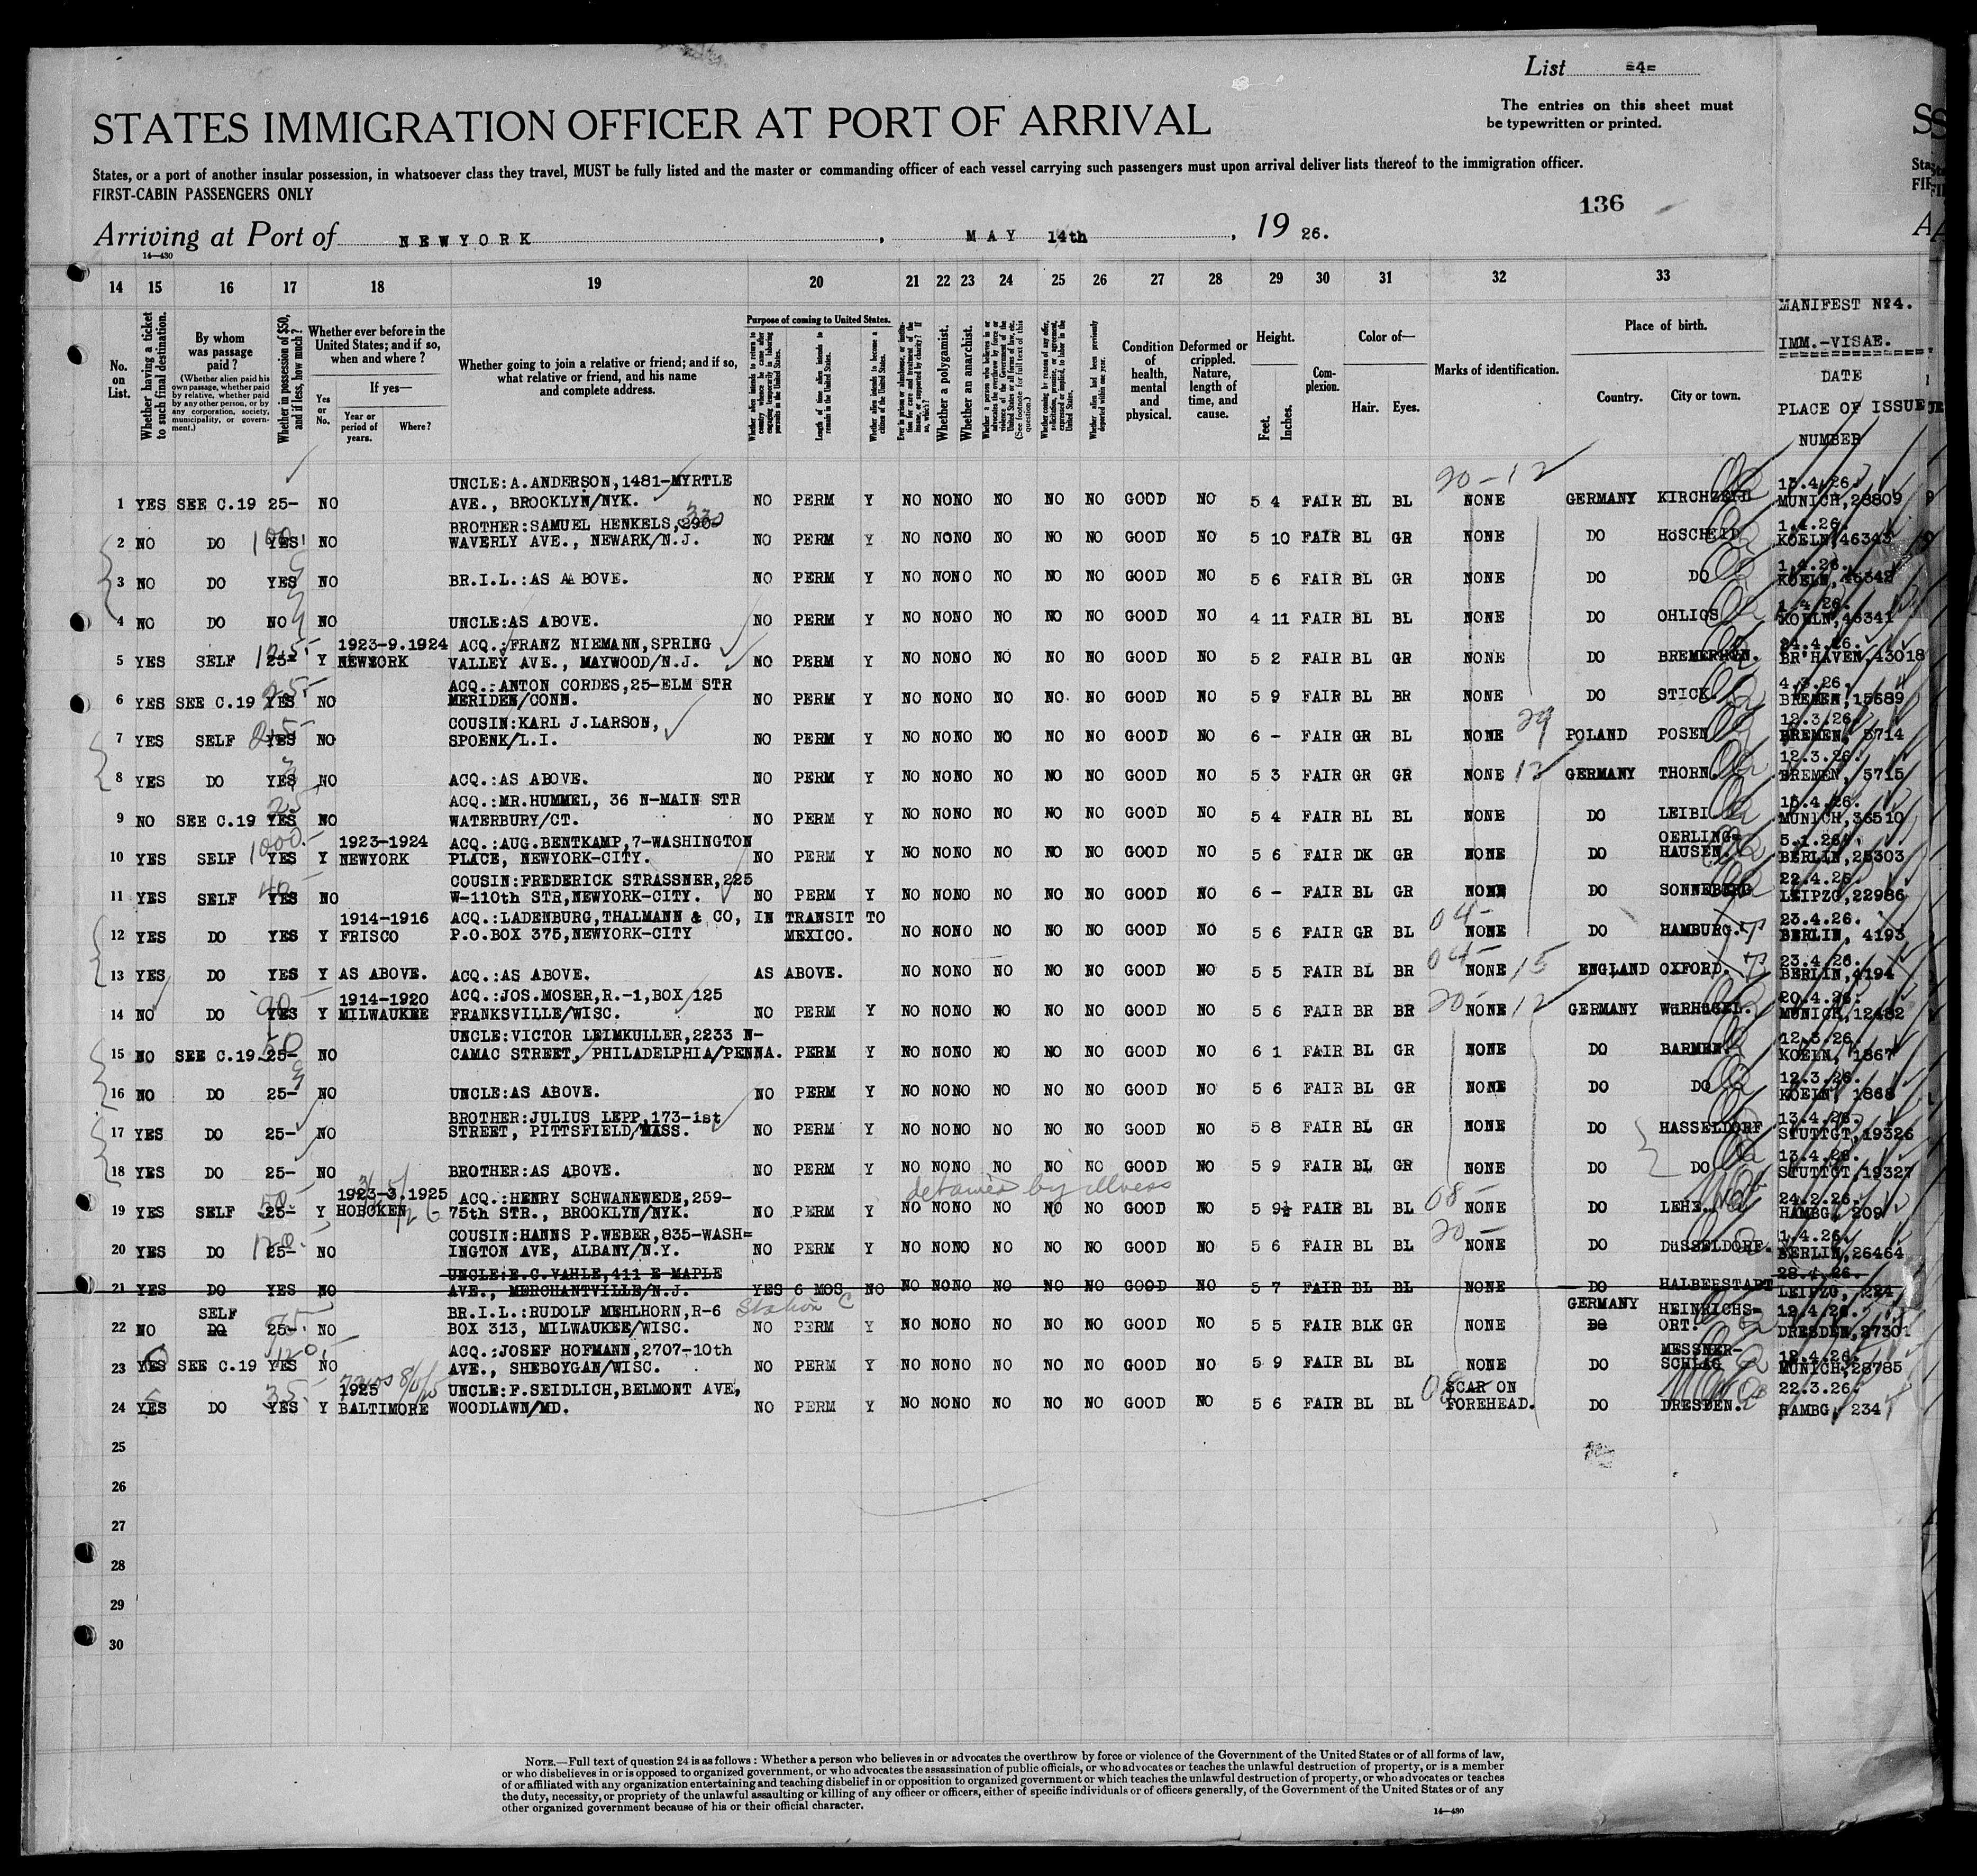 List =4=
The entries on this sheet must
be typewritten or printed.
STATES IMMIGRATION OFFICER AT PORT OF ARRIVAL
States, or a port of another insular possession, in whatsoever class they travel, MUST be fully listed and the master or commanding officer of each vessel carrying such passengers must upon arrival deliver lists thereof to the immigration officer.
FIRST-CABIN PASSENGERS ONLY
136
Arriving at Port of NEWYORK, MAY 14th, 19 26.
14—430
14 15 16 17 18 19 20 21 22 23 24 25 26 27 28 29 30 31 32 33
No. on List.
Whether having a ticket to such final destination.
By whom was passage paid?
(Whether alien paid his own passage, whether paid by relative, whether paid by any other person, or by any corporation, society, municipality, or government.)
Whether in possession of $50, and if less, how much?
Whether ever before in the United States; and if so, when and where?
Yes or No.
If yes—
Year or period of years.
Where?
Whether going to join a relative or friend; and if so, what relative or friend, and his name and complete address.
Purpose of coming to United States.
Length of time alien intends to remain in the United States.
Whether alien intends to become a citizen of the United States.
Whether a polygamist.
Whether an anarchist.
Condition of health, mental and physical.
Deformed or crippled. Nature, length of time, and cause.
Height.
Feet. Inches.
Complexion.
Color of—
Hair. Eyes.
Marks of identification.
Place of birth.
Country. City or town.
MANIFEST No4.
IMM.-VISAE.
DATE
PLACE OF ISSUE
NUMBER
20-12
UNCLE:A.ANDERSON,1481-MYRTLE 13.4.26.
1 YES SEE C.19 25- NO AVE., BROOKLYN/NYK. NO PERM Y NO NO NO NO NO NO GOOD NO 5 4 FAIR BL BL NONE GERMANY MUNICH,28809
BROTHER:SAMUEL HENKELS, 1.4.26.
2 NO DO YES NO WAVERLY AVE., NEWARK/N.J. NO PERM Y NO NO NO NO NO NO GOOD NO 5 10 FAIR BL GR NONE DO HöSCHEID KOELN,46343
1.4.26.
3 NO DO YES NO BR.I.L.:AS ABOVE. NO PERM Y NO NO NO NO NO NO GOOD NO 5 6 FAIR BL GR NONE DO DO KOELN,46342
1.4.26.
4 NO DO NO NO UNCLE:AS ABOVE. NO PERM Y NO NO NO NO NO NO GOOD NO 4 11 FAIR BL BL NONE DO OHLIGS KOELN,46341
1923-9.1924 ACQ.:FRANZ NIEMANN,SPRING 24.4.26.
5 YES SELF 25- Y NEWYORK VALLEY AVE., MAYWOOD/N.J. NO PERM Y NO NO NO NO NO NO GOOD NO 5 2 FAIR BL GR NONE DO BREMERHVN. BR'HAVEN,43018
ACQ.:ANTON CORDES,25-ELM STR 4.3.26.
6 YES SEE C.19 YES NO MERIDEN/CONN. NO PERM Y NO NO NO NO NO NO GOOD NO 5 9 FAIR BL BR NONE DO STICK. BREMEN,15689
COUSIN:KARL J.LARSON, 12.3.26.
7 YES SELF YES NO SPOENK/L.I. NO PERM Y NO NO NO NO NO NO GOOD NO 6 - FAIR GR BL NONE POLAND POSEN BREMEN, 5714
12.3.26.
8 YES DO YES NO ACQ.:AS ABOVE. NO PERM Y NO NO NO NO NO NO GOOD NO 5 3 FAIR GR GR NONE 12 GERMANY THORN. BREMEN, 5715
ACQ.:MR.HUMMEL, 36 N-MAIN STR 15.4.26.
9 NO SEE C.19 YES NO WATERBURY/CT. NO PERM Y NO NO NO NO NO NO GOOD NO 5 4 FAIR BL BL NONE DO LEIBI MUNICH,36510
1923-1924 ACQ.:AUG.BENTKAMP,7-WASHINGTON OERLING= 5.1.26.
10 YES SELF 1000.- YES Y NEWYORK PLACE, NEWYORK-CITY. NO PERM Y NO NO NO NO NO NO GOOD NO 5 6 FAIR DK GR NONE DO HAUSEN. BERLIN,25303
COUSIN:FREDERICK STRASSNER,225 22.4.26.
11 YES SELF YES NO W-110th STR,NEWYORK-CITY. NO PERM Y NO NO NO NO NO NO GOOD NO 6 - FAIR BL GR NONE DO SONNEBERG LEIPZG,22986
1914-1916 ACQ.:LADENBURG,THALMANN & CO, IN TRANSIT TO 04- 23.4.26.
12 YES DO YES Y FRISCO P.O.BOX 375,NEWYORK-CITY MEXICO. NO NO NO NO NO NO GOOD NO 5 6 FAIR GR BL NONE DO HAMBURG. BERLIN, 4193
04- 23.4.26.
13 YES DO YES Y AS ABOVE. ACQ.:AS ABOVE. AS ABOVE. NO NO NO NO NO NO GOOD NO 5 5 FAIR BL BR NONE 15 ENGLAND OXFORD. BERLIN,4194
1914-1920 ACQ.:JOS.MOSER,R.-1,BOX 125 20.4.26.
14 NO DO YES Y MILWAUKEE FRANKSVILLE/WISC. NO PERM Y NO NO NO NO NO NO GOOD NO 5 6 FAIR BR BR NONE 12 GERMANY WüRHüGEL. MUNICH,12482
UNCLE:VICTOR LEIMKULLER,2233 N- 12.3.26.
15 NO SEE C.19. 25- NO CAMAC STREET, PHILADELPHIA/PENNA. PERM Y NO NO NO NO NO NO GOOD NO 6 1 FAIR BL GR NONE DO BARMEN. KOELN, 1867
12.3.26.
16 NO DO 25- NO UNCLE:AS ABOVE. NO PERM Y NO NO NO NO NO NO GOOD NO 5 6 FAIR BL GR NONE DO DO KOELN, 1868
BROTHER:JULIUS LEPP,173-1st 13.4.26.
17 YES DO 25- NO STREET, PITTSFIELD/MASS. NO PERM Y NO NO NO NO NO NO GOOD NO 5 8 FAIR BL GR NONE DO HASSELDORF STUTTGT,19326
13.4.26.
18 YES DO 25- NO BROTHER:AS ABOVE. NO PERM Y NO NO NO NO NO NO GOOD NO 5 9 FAIR BL GR NONE DO DO STUTTGT,19327
detained by illness
1923-3.1925 ACQ.:HENRY SCHWANEWEDE,259- 08- 24.2.26.
19 YES SELF 25- Y HOBOKEN 75th STR., BROOKLYN/NYK. NO PERM Y NO NO NO NO NO NO GOOD NO 5 9½ FAIR BL BL NONE DO LEHE. HAMBG, 209
COUSIN:HANNS P.WEBER,835-WASH= 20- 1.4.26.
20 YES DO 25- NO INGTON AVE, ALBANY/N.Y. NO PERM Y NO NO NO NO NO NO GOOD NO 5 6 FAIR BL BL NONE DO DüSSELDORF. BERLIN,26464
UNCLE:E.C.VAHLE,411 E-MAPLE 28.4.26.
21 YES DO YES NO AVE., MERCHANTVILLE/N.J. YES 6 MOS NO NO NO NO NO NO NO GOOD NO 5 7 FAIR BL BL NONE DO HALBERSTADT LEIPZG, 224
SELF BR.I.L.:RUDOLF MEHLHORN,R-6 Station C GERMANY HEINRICHS= 12.4.26.
22 NO DO 25- NO BOX 313, MILWAUKEE/WISC. NO PERM Y NO NO NO NO NO NO GOOD NO 5 5 FAIR BLK GR NONE DO ORT. DRESDEN,27301
ACQ.:JOSEF HOFMANN,2707-10th MESSNER- 12.4.26.
23 YES SEE C.19 YES NO AVE., SHEBOYGAN/WISC. NO PERM Y NO NO NO NO NO NO GOOD NO 5 9 FAIR BL BL NONE DO SCHLAG MUNICH,28785
1925 UNCLE:F.SEIDLICH,BELMONT AVE, SCAR ON 22.3.26.
24 YES DO YES Y BALTIMORE WOODLAWN/MD. NO PERM Y NO NO NO NO NO NO GOOD NO 5 6 FAIR BL BL FOREHEAD. DO DRESDEN. HAMBG, 234
25
26
27
28
29
30
NOTE.—Full text of question 24 is as follows: Whether a person who believes in or advocates the overthrow by force or violence of the Government of the United States or of all forms of law,
or who disbelieves in or is opposed to organized government, or who advocates the assassination of public officials, or who advocates or teaches the unlawful destruction of property, or is a member
of or affiliated with any organization entertaining and teaching disbelief in or opposition to organized government or which teaches the unlawful destruction of property, or who advocates or teaches
the duty, necessity, or propriety of the unlawful assaulting or killing of any officer or officers, either of specific individuals or of officers generally, of the Government of the United States or of any
other organized government because of his or their official character.
14—430